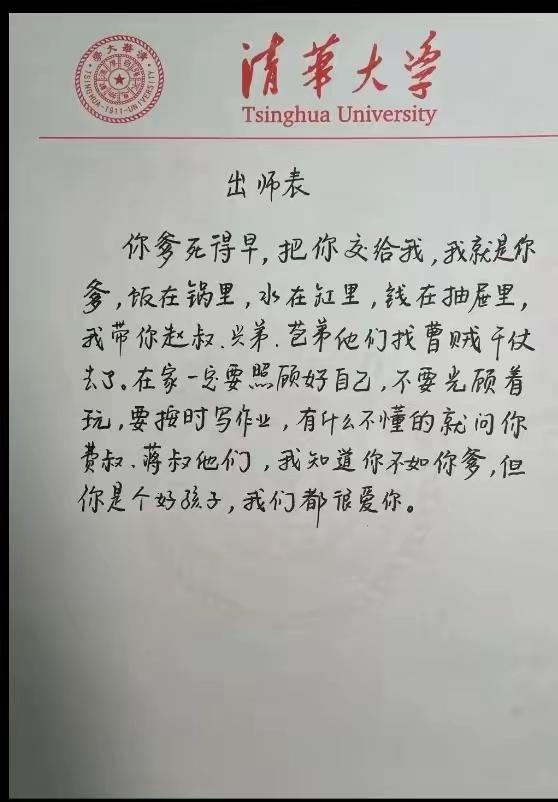 清華大学
Tsinghua University
TSINGHUA-1911-UNIVERSITY
出师表
你爹死得早，把你交给我，我就是你
爹，饭在锅里，水在缸里，钱在抽屉里，
我带你赵叔、兴弟、苞弟他们找曹贼干仗
去了。在家一定要照顾好自己，不要光顾着
玩，要按时写作业，有什么不懂的就问你
费叔、蒋叔他们，我知道你不如你爹，但
你是个好孩子，我们都很爱你。